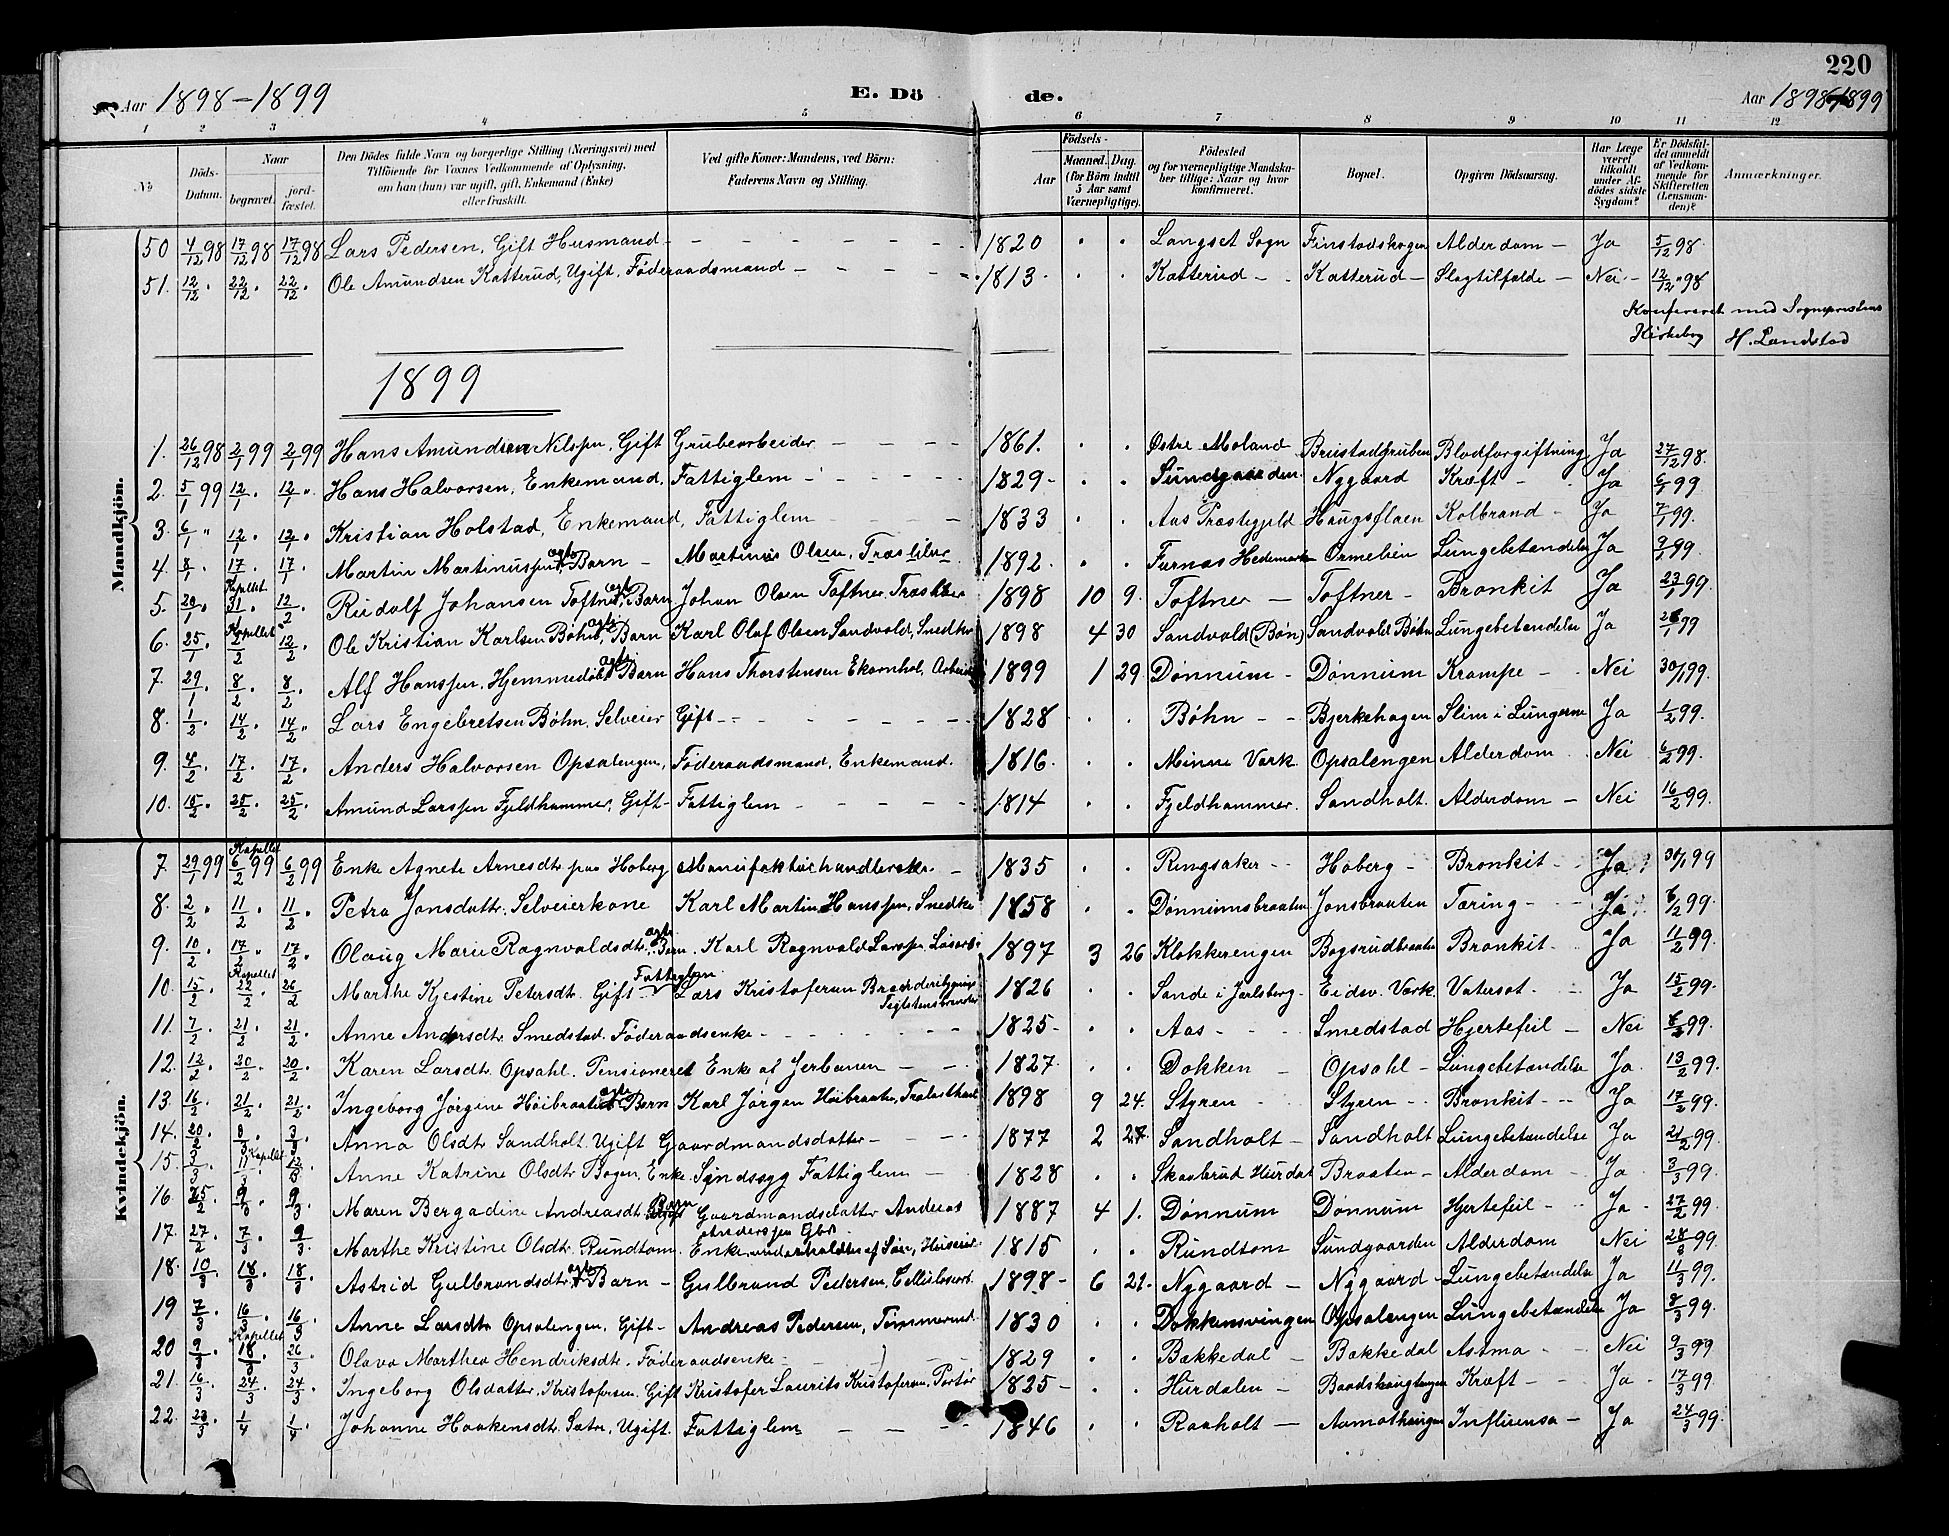 220
Aar 1898-1899 E. Dö de. Aar 1898-1899
1 2 3 4 5 6 7 8 9 10 11 12
No
Döds-Datum.
Naar
begravet.
jord-fæstet.
Den Dödes fulde Navn og borgerlige Stilling (Næringsvei) med
Tilföiende for Voxnes Vedkommende af Oplysning,
om han (hun) var ugift, gift, Enkemand (Enke)
eller fraskilt.
Ved gifte Koner: Mandens, ved Börn:
Faderens Navn og Stilling.
Födsels-
Aar
Maaned. Dag.
(for Börn indtil
5 Aar samt
Værnepligtige).
Födested
og for værnepligtige Mandska-
ber tillige: Naar og hvor
konfirmeret.
Bopæl.
Opgiven Dödsaarsag.
Har Læge
været
tilkaldt
under Af-
dödes sidste
Sygdom?
Er Dödsfal-
det anmeldt
af Vedkom-
mende for
Skifteretten
(Lensman-
den)?
Anmærkninger.
Mandkjön.
50 4/12 98 17/12 98 17/12 98 Lars Pedersen, Gift Husmand - 1820 Langset Sogn Finstadskogen Alderdom - Ja 5/12 98.
51. 12/12 22/12 22/12 Ole Amundsen Katterud, Ugift, Föderaadsmand - 1813. Katterud - Katterud - Slagtilfælde - Nei - 12/12 98
Konfereret med Sognepræstens
Kirkebog H. Landstad
1899
1. 26/12 98 2/1 99 2/1 99 Hans Amundsen Nilssen, Gift Grubearbeider - 1861. Østre Moland Brustadgruben Blodforgiftning Ja 27/12 98.
2. 5/1 99 12/1 12/1 Hans Halvorsen, Enkemand, Fattiglem - 1829 - Sundgaarden Nygaard Kræft - Ja 6/1 99
3. 6/1 " 12/1 12/1 Kristian Holstad, Enkemand, Fattiglem 1833 Aas Præstegjeld Haugsflaen Kolbrand - Ja 7/1 99.
4. 8/1 17/1 17/1 Martin Martinussen, ægte Barn - Martinus Olsen, Træsliber 1892. Furnæs Hedemark Ormelien Lungebetændelse Ja 9/1 99.
5. 20/1 Kapellet 31/1 12/2 Rudolf Johansen Toftner, ægte Barn Johan Olsen Toftner, Træsliber 1898 10 9. Toftner - Toftner - Bronkit Ja 23/1 99.
6. 25/1 Kapellet 2/2 12/2 Ole Kristian Karlsen Böhn, ægte Barn Karl Olaf Olsen Sandvold, Snedker 1898 4 30 Sandvold (Bøn) Sandvold Böhn Lungebetændelse Ja 26/1 99
7. 29/1 8/2 8/2 Alf Hanssen, Hjemmedøbt ægte Barn Hans Thorstensen Ekornhol, Arbeid 1899 1 29. Dønnum - Dønnum Krampe - Nei 30/1 99.
8. 1/2 14/2 14/2 Lars Engebretsen Bøhn, Selveier Gift - 1828 Bøhn - Bjerkehagen Slim i Lungerne Ja 1/2 99.
9. 4/2 17/2 17/2 Anders Halvorsen Opsalengen, Föderaadsmand, Enkemand. 1816. Minne Værk Opsalengen Alderdom Nei 6/2 99.
10. 15/2 25/2 25/2 Amund Larssen Fjeldhammer, Gift - Fattiglem - 1814 Fjeldhammer. Sandholt. Alderdom - Nei 16/2 99.
Kvindekjön.
7. 29/1 99 Kapellet 6/2 99 6/2 99 Enke Agnete Arnesdtr paa Hoberg Manufakturhandlerske. - 1835 Ringsaker - Hoberg - Bronkit - Ja 30/1 99
8. 2/2 11/2 11/2 Petra Jonsdatter, Selveierkone Karl Martin Hanssen, Snedker 1858 Dønnumsbraaten Jonsbraaten Tæring - Ja 6/2 99.
9. 10/2 17/2 17/2 Olaug Marie Ragnvaldsdtr, ægte Barn. Karl Ragnvald Larssen, Løsarb 1897 3 26 Klokkerengen Bogsrudbraaten Bronkit - Ja 11/2 99.
10. 15/2 Kapellet 22/2 26/2 Marthe Kjestine Petersdtr. Gift - Fattiglem Lars Kristofersen 1826 Sande i Jarlsberg - Eidsv. Værk. Vatersot. Ja 15/2 99.
Teglstensbrænder
11. 7/2 21/2 21/2 Anne Andersdtr Smedstad. Föderaadsenke - 1825 - Aas - Smedstad Hjertefeil - Nei 8/2 99.
12. 12/2 20/2 20/2 Karen Larsdtr. Opsahl. Pensioneret Enke af Jerbanen - 1827. Dokken - Opsahl - Lungebetændelse Ja 13/2 99.
13. 16/2 21/2 21/2 Ingeborg Jørgine Høibraaten ægte Barn Karl Jørgen Høibraaten, Trælasthand 1898 9 24. Styren - Styren - Bronkit - Ja 17/2 99.
14. 20/2 8/3 3/3 Anna Olsdtr Sandholt Ugift Gaardmandsdatter - 1877 2 27. Sandholt - Sandholt Lungebetændelse Ja 21/2 99.
15. 3/3 Kapellet 11/3 12/3 Anne Katrine Olsdtr Bogen, Enke. Sindssyg Fattiglem - 1828 Skaabrud Hurdal Braaten - Alderdom - Ja 3/3 99.
16 25/2 9/3 9/3 Maren Bergadine Andreasdtr. Barn Gaardmandsdatter Andreas 1887 4 1. Dønnum Dønnum Hjertefeil - Ja 27/2 99.
Anderssen Gbr.
17. 27/2 7/3 9/3 Marthe Kristine Olsdtr. Rundtom. Enke, underholdtes af Søn, Huseier 1815 Rundtom Sundgaarden Alderdom Nei 28/3 99.
18. 10/3 18/3 18/3 Astrid Gulbrandsdtr, ægte Barn - Gulbrand Pedersen, Cellulosearb. 1898 - 6 21. Nygaard - Nygaard - Lungebetændelse Ja 11/3 99.
19 7/3 16/3 16/3 Anne Larsdtr Opsalengen, Gift - Andreas Pedersen, Tømmermd. 1830 Dokkensvingen Opsalengen Lungebetændelse Ja 8/3 99.
20 9/3 Kapellet 18/3 26/3 Olava Marthea Hendriksdtr. Föderaadsenke - 1829 Bækkedal - Bækkedal Astma - Nei 9/3 99
21. 16/3 24/3 24/3 Ingeborg Olsdatter, Kristofersen. Gift Kristofer Laurits Kristofersen, Portør 1825 - Hurdalen - Kræft - Ja 17/3 99.
22. 23/3 1/4 1/4 Johanne Haakensdtr. Sætre, Ugift. Fattiglem - 1846 Raaholt - Influensa - Ja 24/3 99.